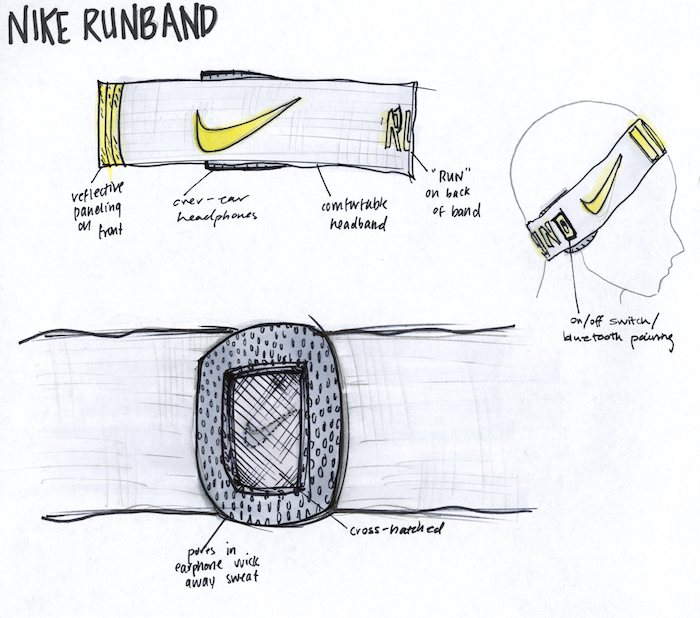 NIKE RUNBAND
reflective
paneling
on front
over-ear
headphones
comfortable
headband
"RUN"
on back
of band
RU
UN
on/off switch/
bluetooth pairing
cross-hatched
pores in
earphone wick
away sweat